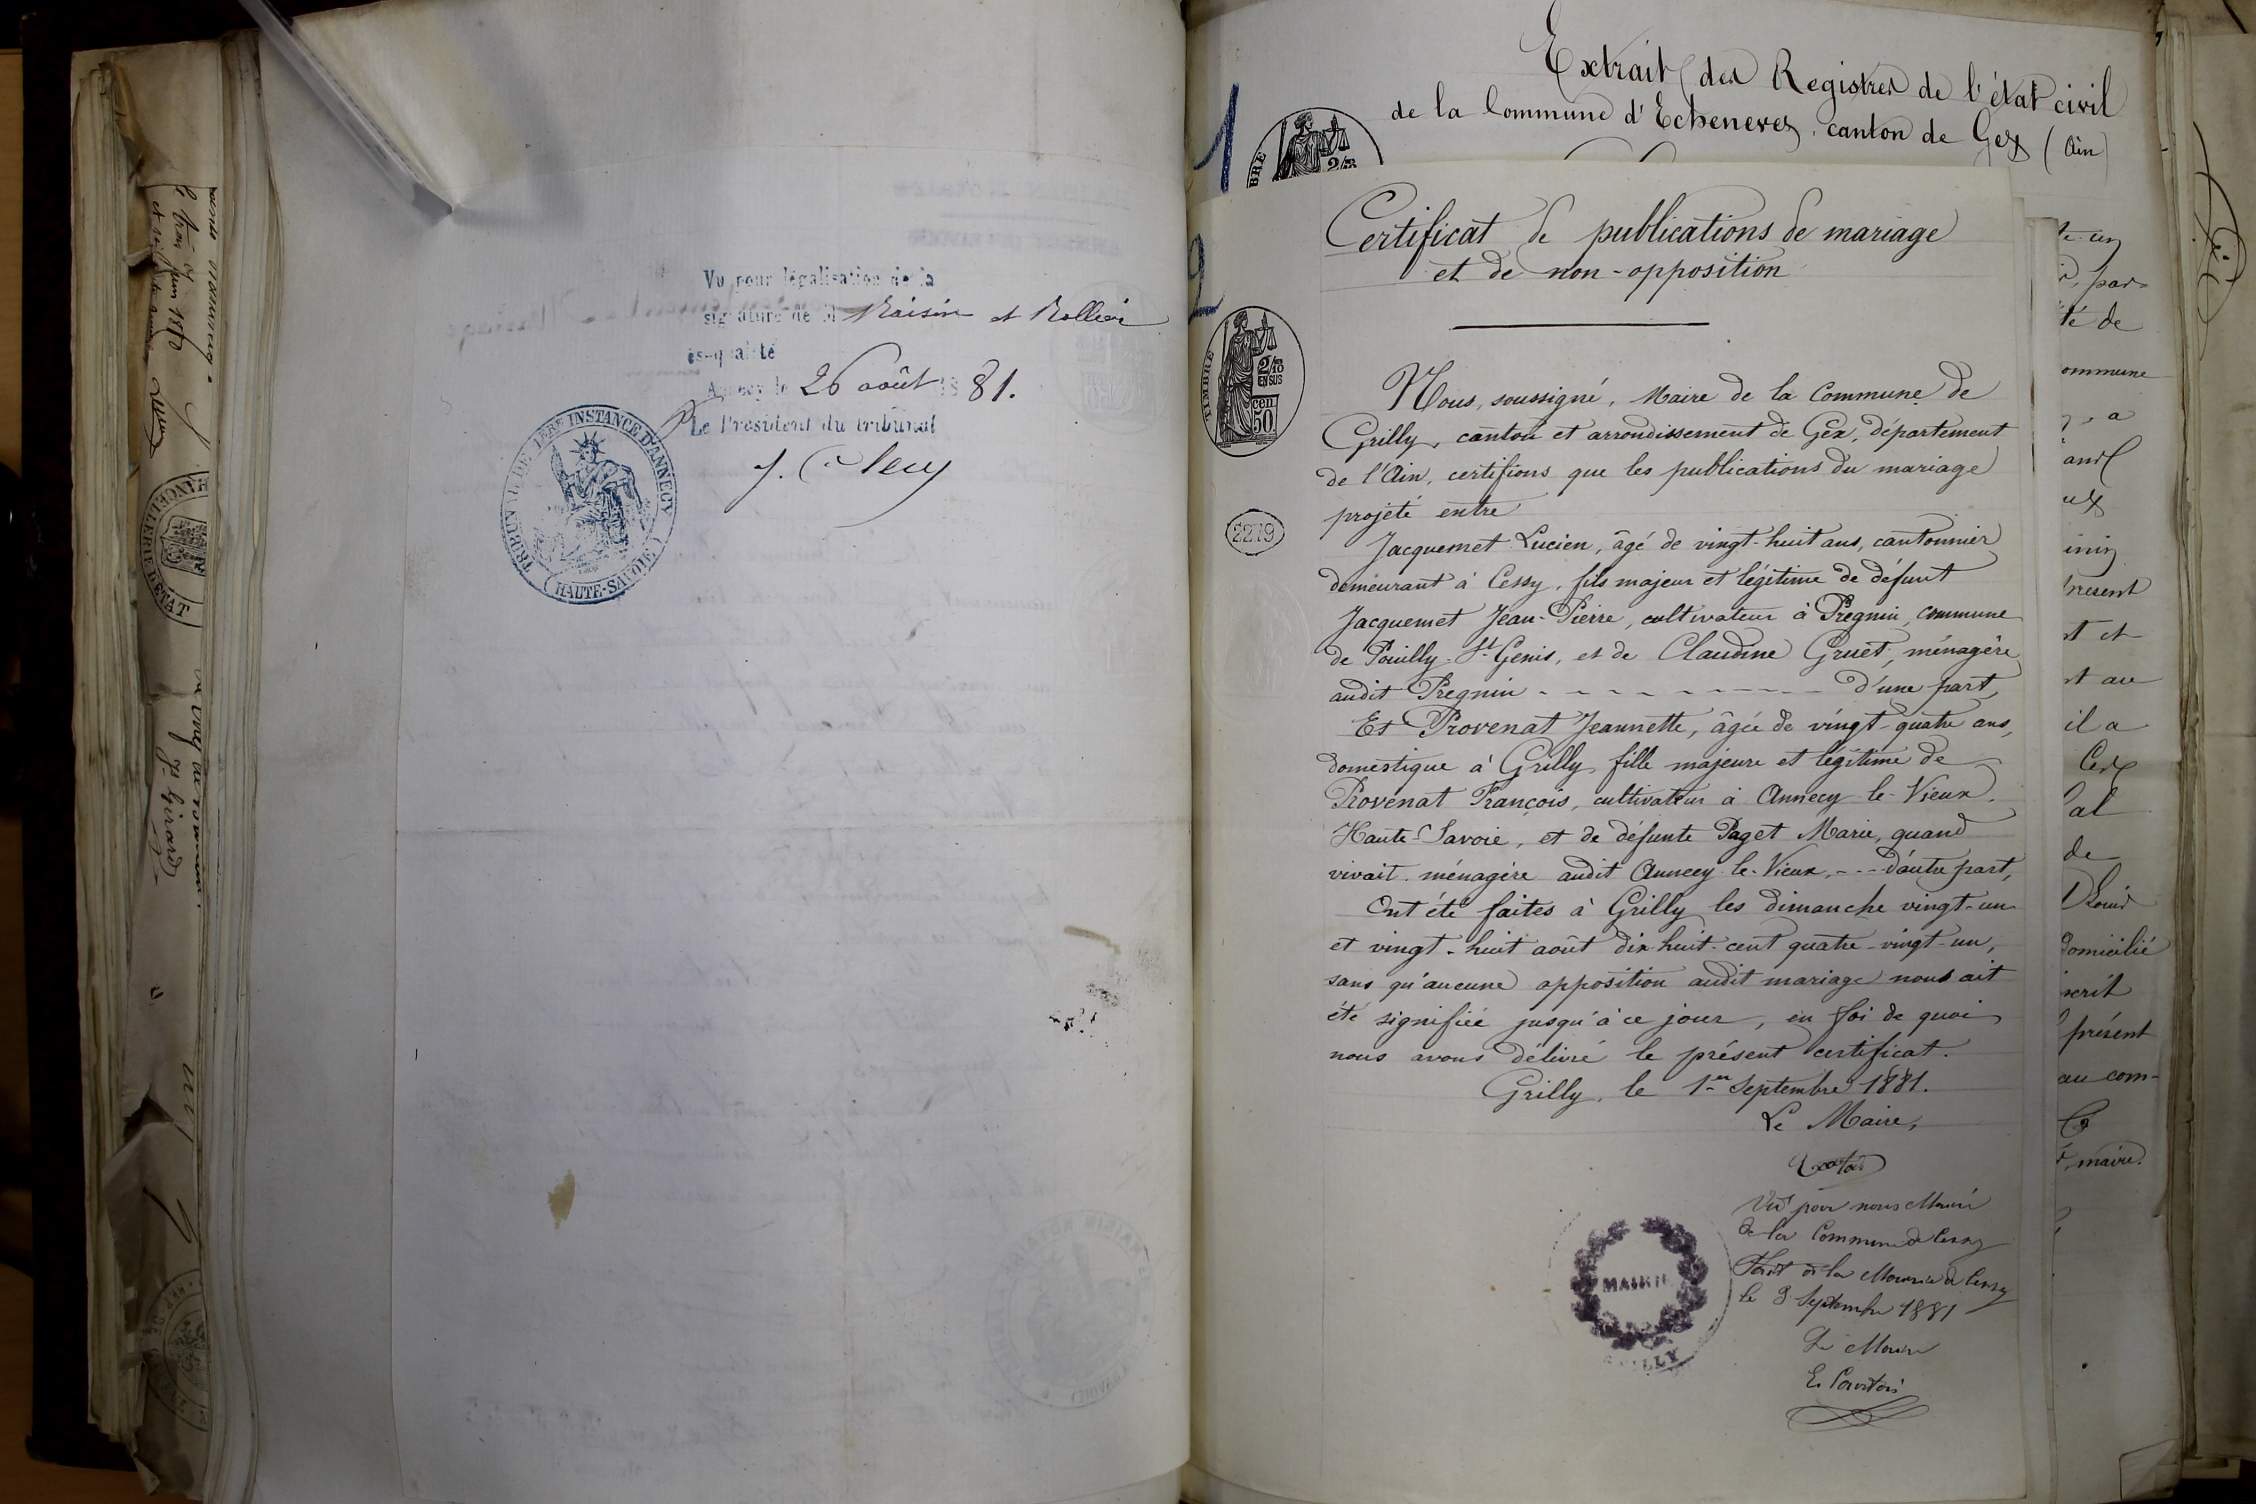 Vu pour légalisation de la
signature de M Raisin et Rollier
ès-qualité
Annecy le 26 août 1881.
Le Président du tribunal
TRIBUNAL DE 1ERE INSTANCE D'ANNECY
(HAUTE-SAVOIE)
le trois Juin 18
CHANCELLERIE D'ÉTAT
J. Girard
Extrait des Registres de l'état civil
de la Commune d'Echenevex, canton de Gex (Ain)
1
2
Certificat de publications de mariage
et de non-opposition
TIMBRE
2/10
EN SUS
cen
50
2279
Nous, soussigné, Maire de la Commune de
Grilly, canton et arrondissement de Gex, département
de l'Ain, certifions que les publications du mariage
projeté entre
Jacquemet Lucien, âgé de vingt-huit ans, cantonnier
demeurant à Cessy, fils majeur et légitime de défunt
Jacquemet Jean-Pierre, cultivateur à Pregnin, commune
de Pouilly-St-Genis, et de Claudine Gruet, ménagère
audit Pregnin - - - - - - - - - d'une part,
Et Provenat Jeannette, âgée de vingt-quatre ans,
domestique à Grilly, fille majeure et légitime de
Provenat François, cultivateur à Annecy-le-Vieux,
Haute-Savoie, et de défunte Paget Marie, quand
vivait ménagère audit Annecy-le-Vieux, - - - d'autre part,
Ont été faites à Grilly les dimanche vingt-un
et vingt-huit août dix huit-cent quatre-vingt-un,
sans qu'aucune opposition audit mariage nous ait
été signifiée jusqu'à ce jour, en foi de quoi
nous avons délivré le présent certificat.
Grilly, le 1er Septembre 1881.
Le Maire,
Vu pour nous Maire
de la Commune de Cessy
Fait à la Mairie de Cessy
le 3 Septembre 1881
Le Maire
MAIRIE
GRILLY
par
té de
ommune
a
and
ux
présent
et
au
il a
Cex
al
de
Louis
domicilié
scrit
présent
au com-
maire.